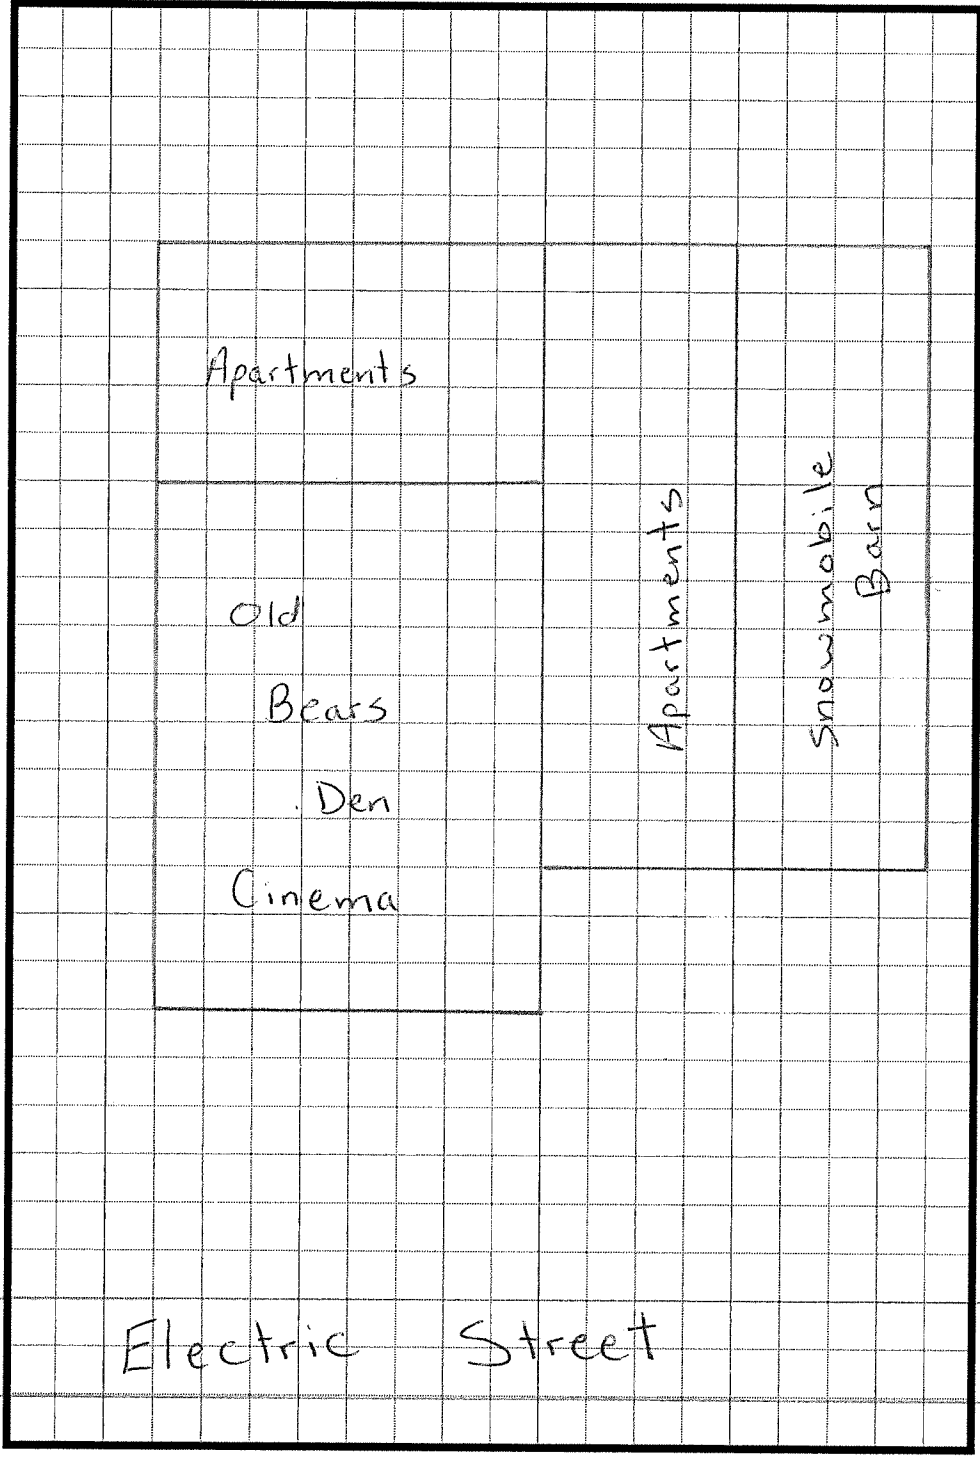 Apartments
Old
Bears
Den
Cinema
Apartments
Snowmobile
Barn
Electric Street